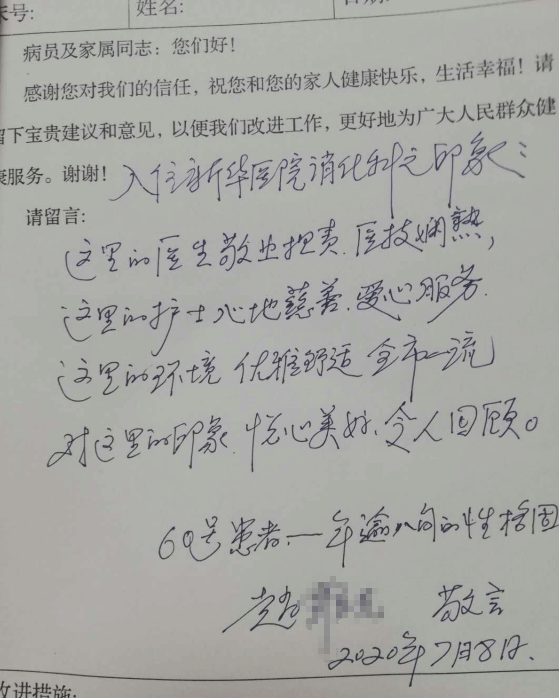 床号:　姓名:　日期:
病员及家属同志：您们好！
感谢您对我们的信任，祝您和您的家人健康快乐，生活幸福！请
留下宝贵建议和意见，以便我们改进工作，更好地为广大人民群众健
康服务。谢谢！
入住新华医院消化科之印象：
请留言:
这里的医生敬业担责、医技娴熟，
这里的护士心地慈善、爱心服务.
这里的环境 优雅舒适 全市一流
对这里的印象、悦心美好、令人回顾。
69号患者.一年逾八旬的性格固
敬言
2020年7月8日.
改进措施: